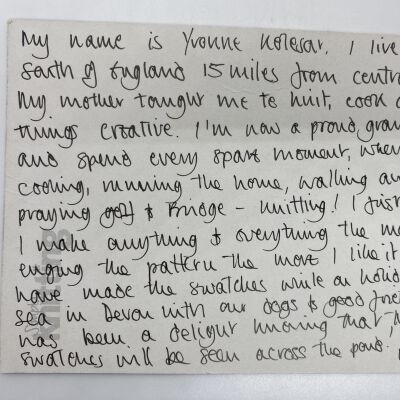 My name is Yvonne Kolesar, I live
South of England 15 miles from centr
My mother taught me to knit, cook a
things creative. I'm now a proud gran
and spend every spare moment, when
cooking, running the home, walking au
praying golf & Bridge - knitting! I just
I make anything & everything the mo
enging the pattern the more I like it
have made the swatches while on holid
sea in Devon with our dogs & good frie
has been a delight knowing that,
swatches will be seen across the pond.